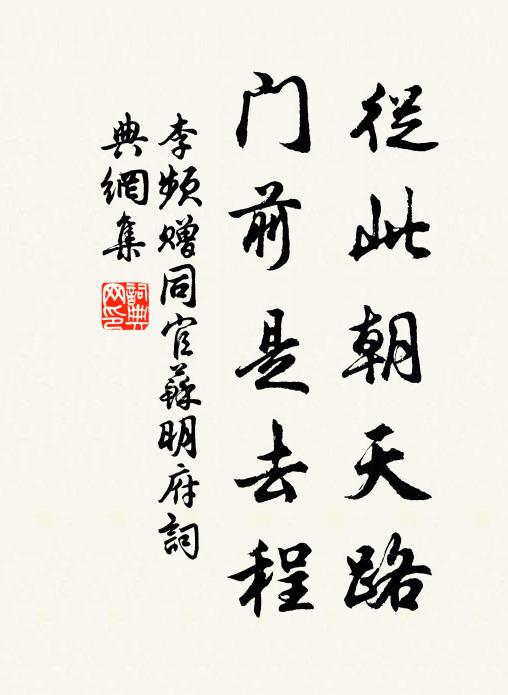 從此朝天路
门前是去程
李频赠同官蘇明府詞
典網集
詞典网印